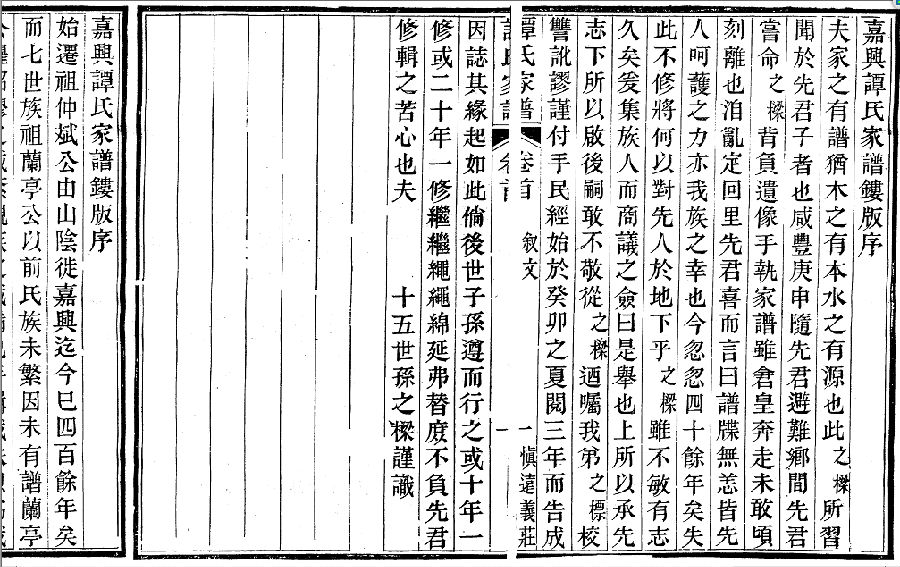 嘉興譚氏家譜鏤版序
夫家之有譜猶木之有本水之有源也此之樑所習
聞於先君子者也咸豐庚申隨先君避難鄉間先君
嘗命之樑背負遺像手執家譜雖倉皇奔走未敢頃
刻離也洎亂定回里先君喜而言曰譜牒無恙皆先
人呵護之力亦我族之幸也今忽忽四十餘年矣失
此不修將何以對先人於地下乎之樑雖不敏有志
久矣爰集族人而商議之僉曰是舉也上所以承先
志下所以啟後嗣敢不敬從之樑迺囑我弟之標校
讐訛謬謹付手民經始於癸卯之夏閱三年而告成
譚氏家譜 卷首 敘文 一 慎遠義莊
因誌其緣起如此倘後世子孫遵而行之或十年一
修或二十年一修繼繼繩繩綿延弗替庶不負先君
修輯之苦心也夫
十五世孫之樑謹識
嘉興譚氏家譜鏤版序
始遷祖仲斌公由山陰徙嘉興迄今已四百餘年矣
而七世族祖蘭亭公以前氏族未繁因未有譜蘭亭